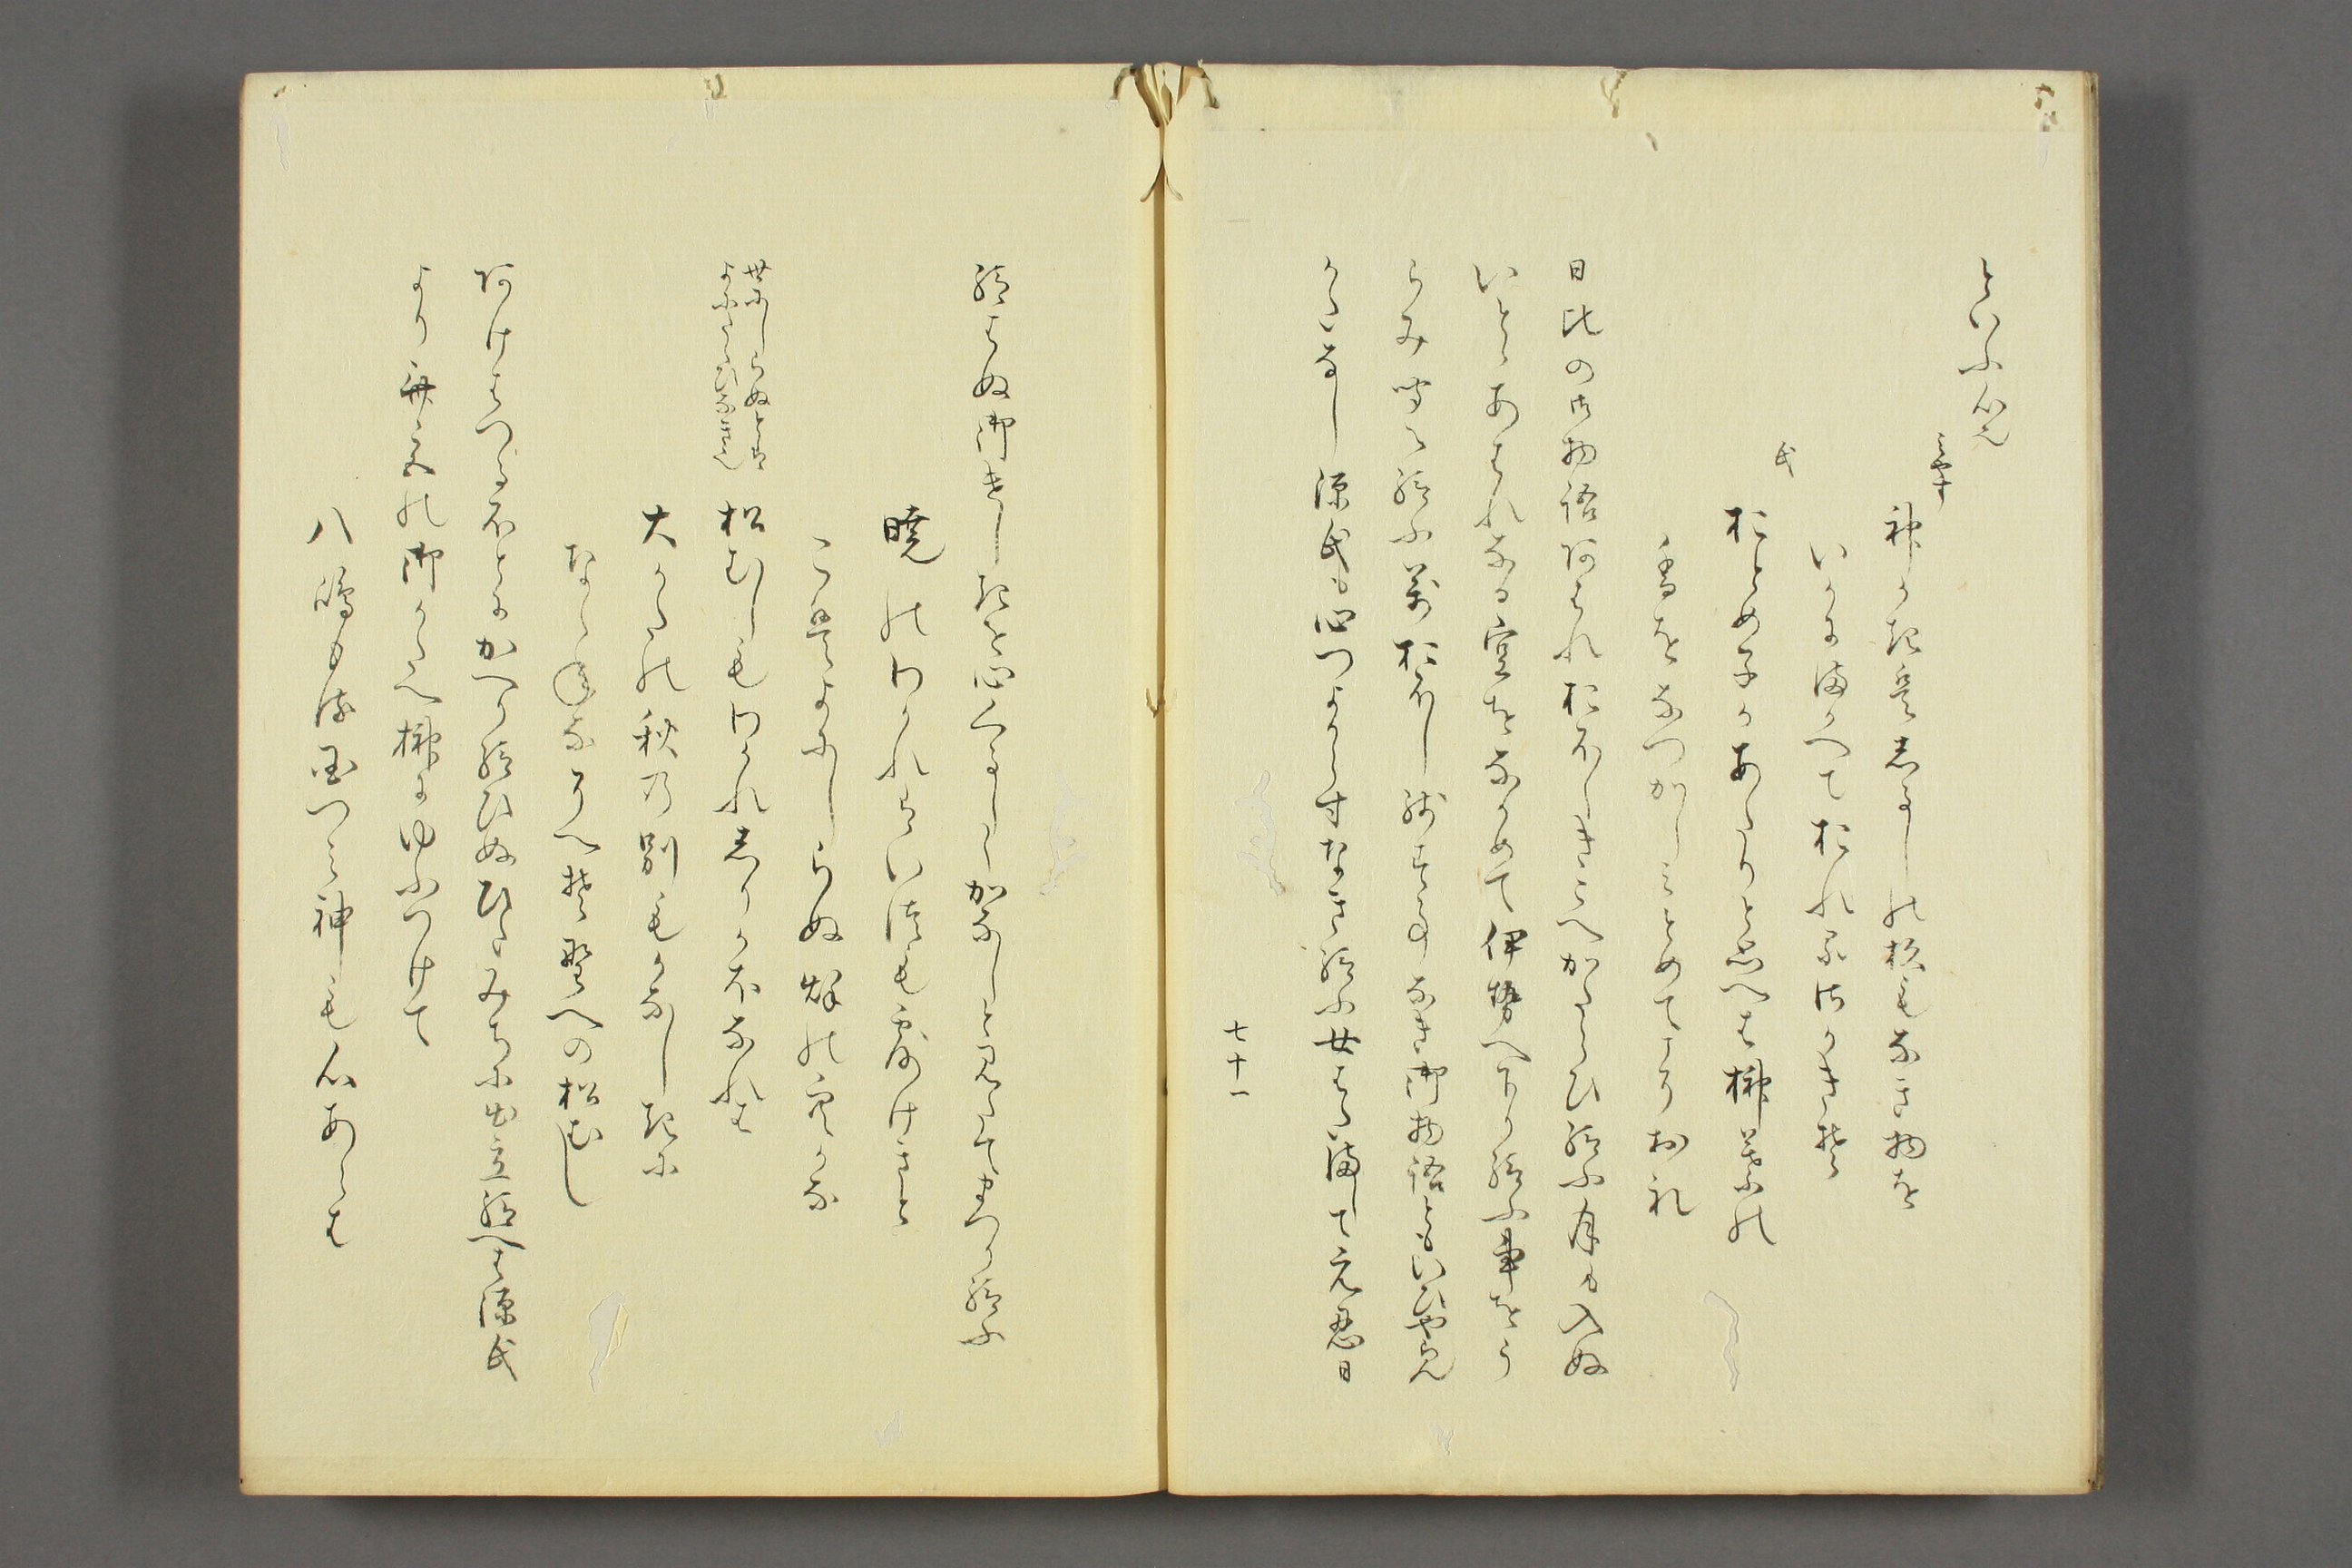 といふ心也
みやす
神かき盤しるしの杉もなき物を
いかにまかへておれる御かきそ
氏
おとめ子かあたりと思へは榊葉の
香をなつかしみとめてこそおれ
日比の御物語あはれおほしきこへかたらひ給ふ月も入ぬ
いとゝあはれなる空をなかめて伊勢へ下り給ふ事をう
らみ聞え給ふ万おほし残すことなき御物語ともいひやらん
かたなし源氏も心つよからすなき給ふ女はまして元忍日
七十一
給はぬ御けしきを心くるしくかなしと見たてまつり給ふ
暁のわかれはいつも露けきを
こは世にしらぬ秋の空かな
世にしらぬとは
よにたくひなき也
松むしもわかれしりかほなれは
大かたの秋の別もかなしきに
なく音なそへそ野への松むし
あけはつるほとにかへり給ひぬひるみちに出立給へは源氏
より斎宮の御かたへ榊にゆふつけて
八嶋もる国つみ神も心あらは